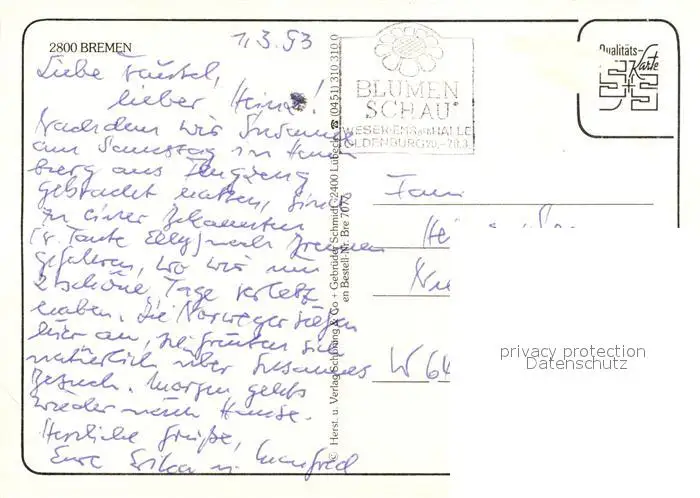 2800 BREMEN
1.3.93
Liebe
lieber Heinz!
Nachdem wir Susanne
am Samstag in Ham-
berg aus Flugzeug
gebracht hatten, sind
zu einer Bekannten
(v. Tante Elly) nach Bremen
gefahren, wo wir nun
2 schöne Tage verlebt
haben. Die Norweger riefen
hier an, sie freuten sich
natürlich über Susannes
Besuch. Morgen gehts
wieder nach Hause.
Herzliche Grüße,
Eure Erika u. Manfred
© Herst. u. Verlag Schöning & Co + Gebrüder Schmidt, 2400 Lübeck ☎ (0451) 310 310 0
en Bestell-Nr. Bre 7077
BLUMEN
SCHAU
WESER-EMS-HALLE
OLDENBURG 20.-28.3.
Qualitäts-
Karte
Fam.
W 64
privacy protection
Datenschutz